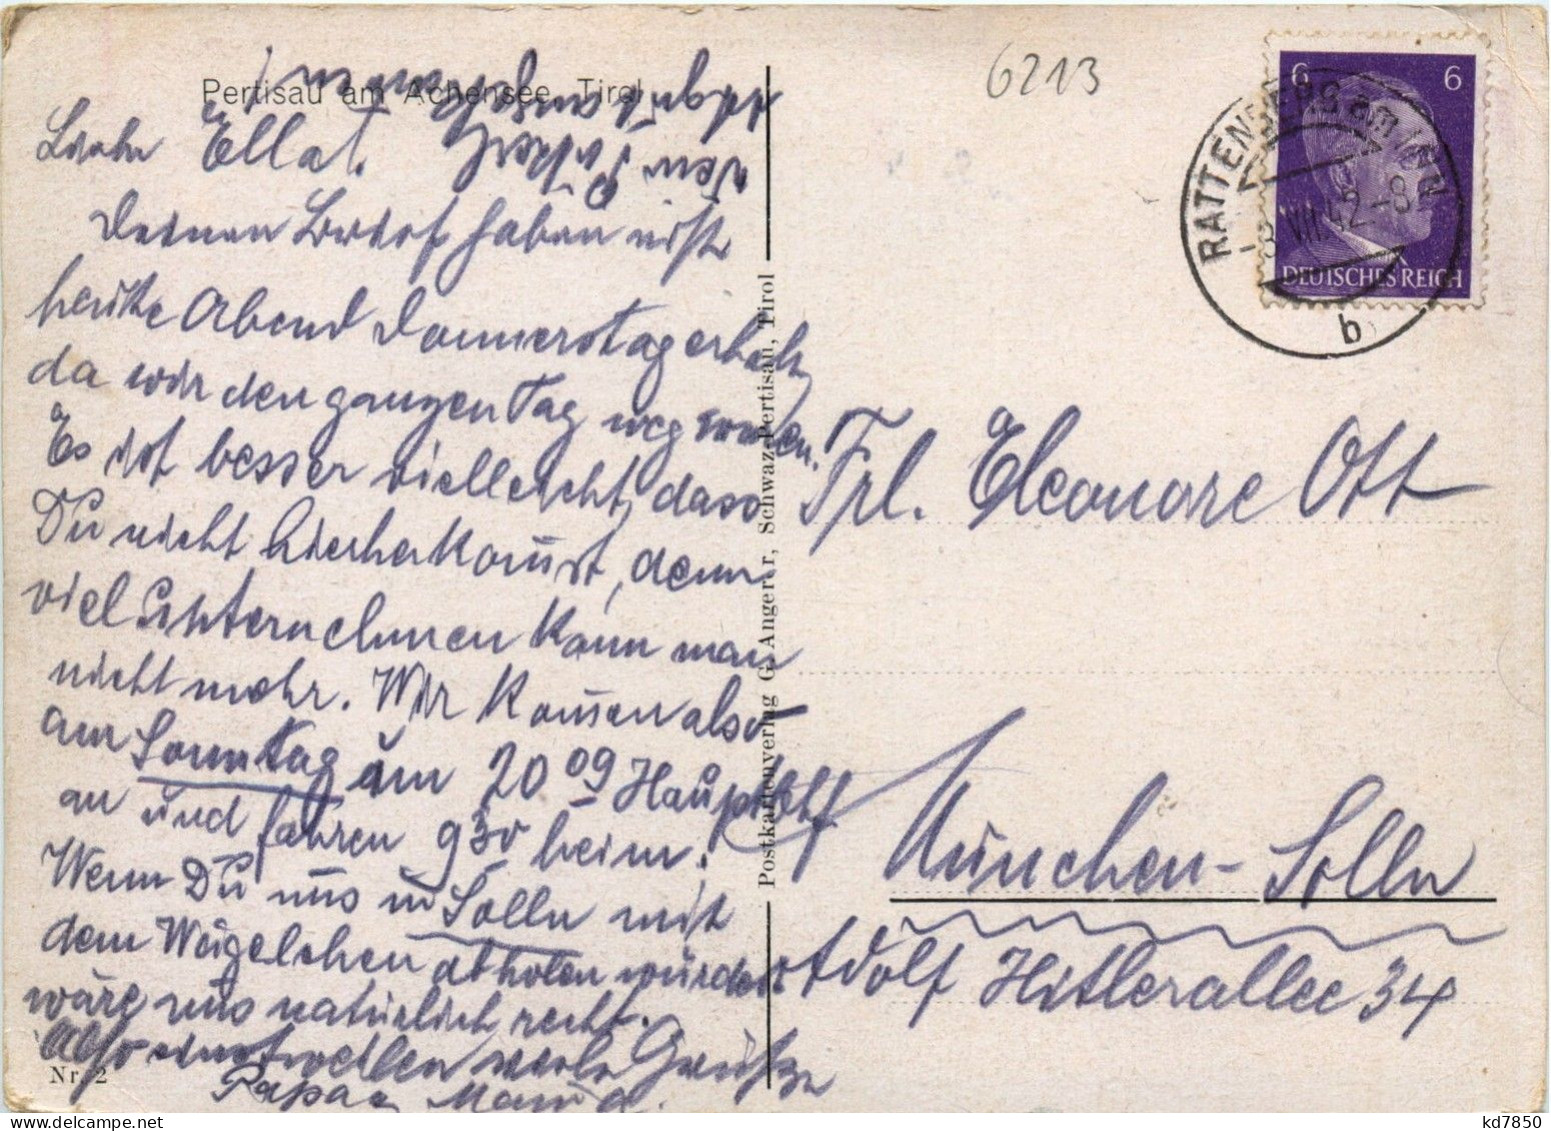 Pertisau am Achensee, Tirol
6213
6 6
DEUTSCHES REICH
RATTENBERG am INN
-3.VII.42-8
b
Liebe Ella!
Deinen Brief haben wir
heute Abend Donnerstag erhalt,
da wir den ganzen Tag weg waren.
Es ist besser vielleicht, dass
Du nicht hierherkommst, denn
viel unternehmen kann man
nicht mehr. Wir kommen also
am Sonntag um 20 09 Hauptbhf
an und fahren 930 heim.
Wenn Du uns in Solln mit
dem Wägelchen abholen würdest
wäre uns natürlich recht.
Also einstweilen viele Grüße
Papa Mama
Frl. Eleonore Ott
München-Solln
Adolf Hitlerallee 34
Postkartenverlag G. Angerer, Schwaz-Pertisau, Tirol
Nr. 2
kd7850